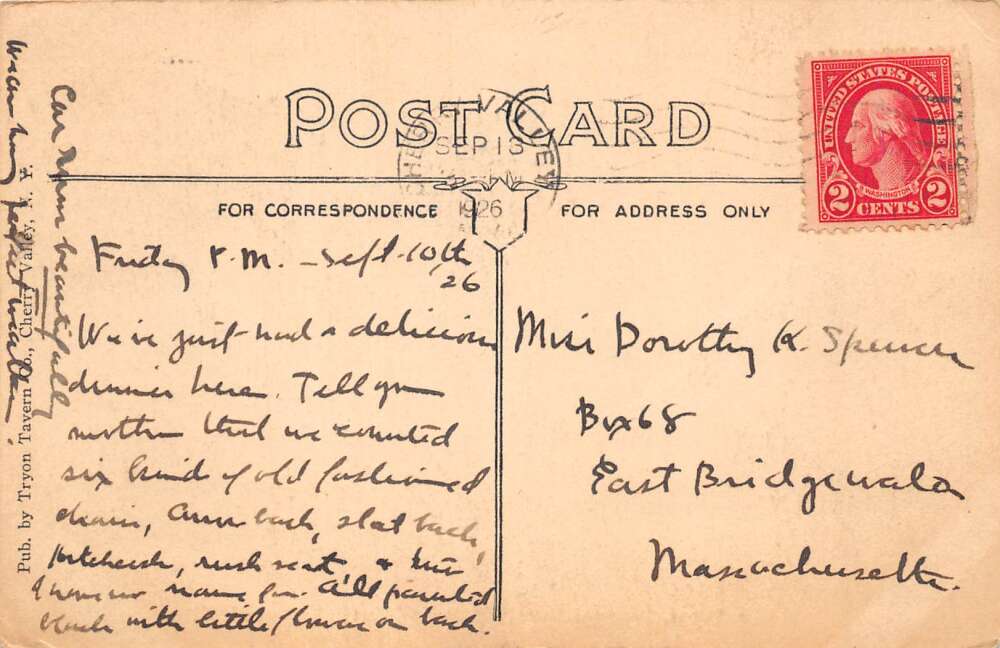 POST CARD
CHERRY VALLEY
SEP 13
PM
1926
UNITED STATES POSTAGE
WASHINGTON
2 CENTS 2
FOR CORRESPONDENCE
FOR ADDRESS ONLY
Friday P.M. - Sept. 10th
26
We've just had a delicious
dinner here. Tell your
mother that we counted
six kind of old fashioned
chairs, arrow back, slat back,
pitchfork, rush seat &
name for. All painted
black with little flower on back.
Car runs beautifully
perfect weather!
Miss Dorothy K. Spencer
Box 68
East Bridgewater
Massachusetts.
Pub. by Tryon Tavern Co., Cherry Valley, N. Y.